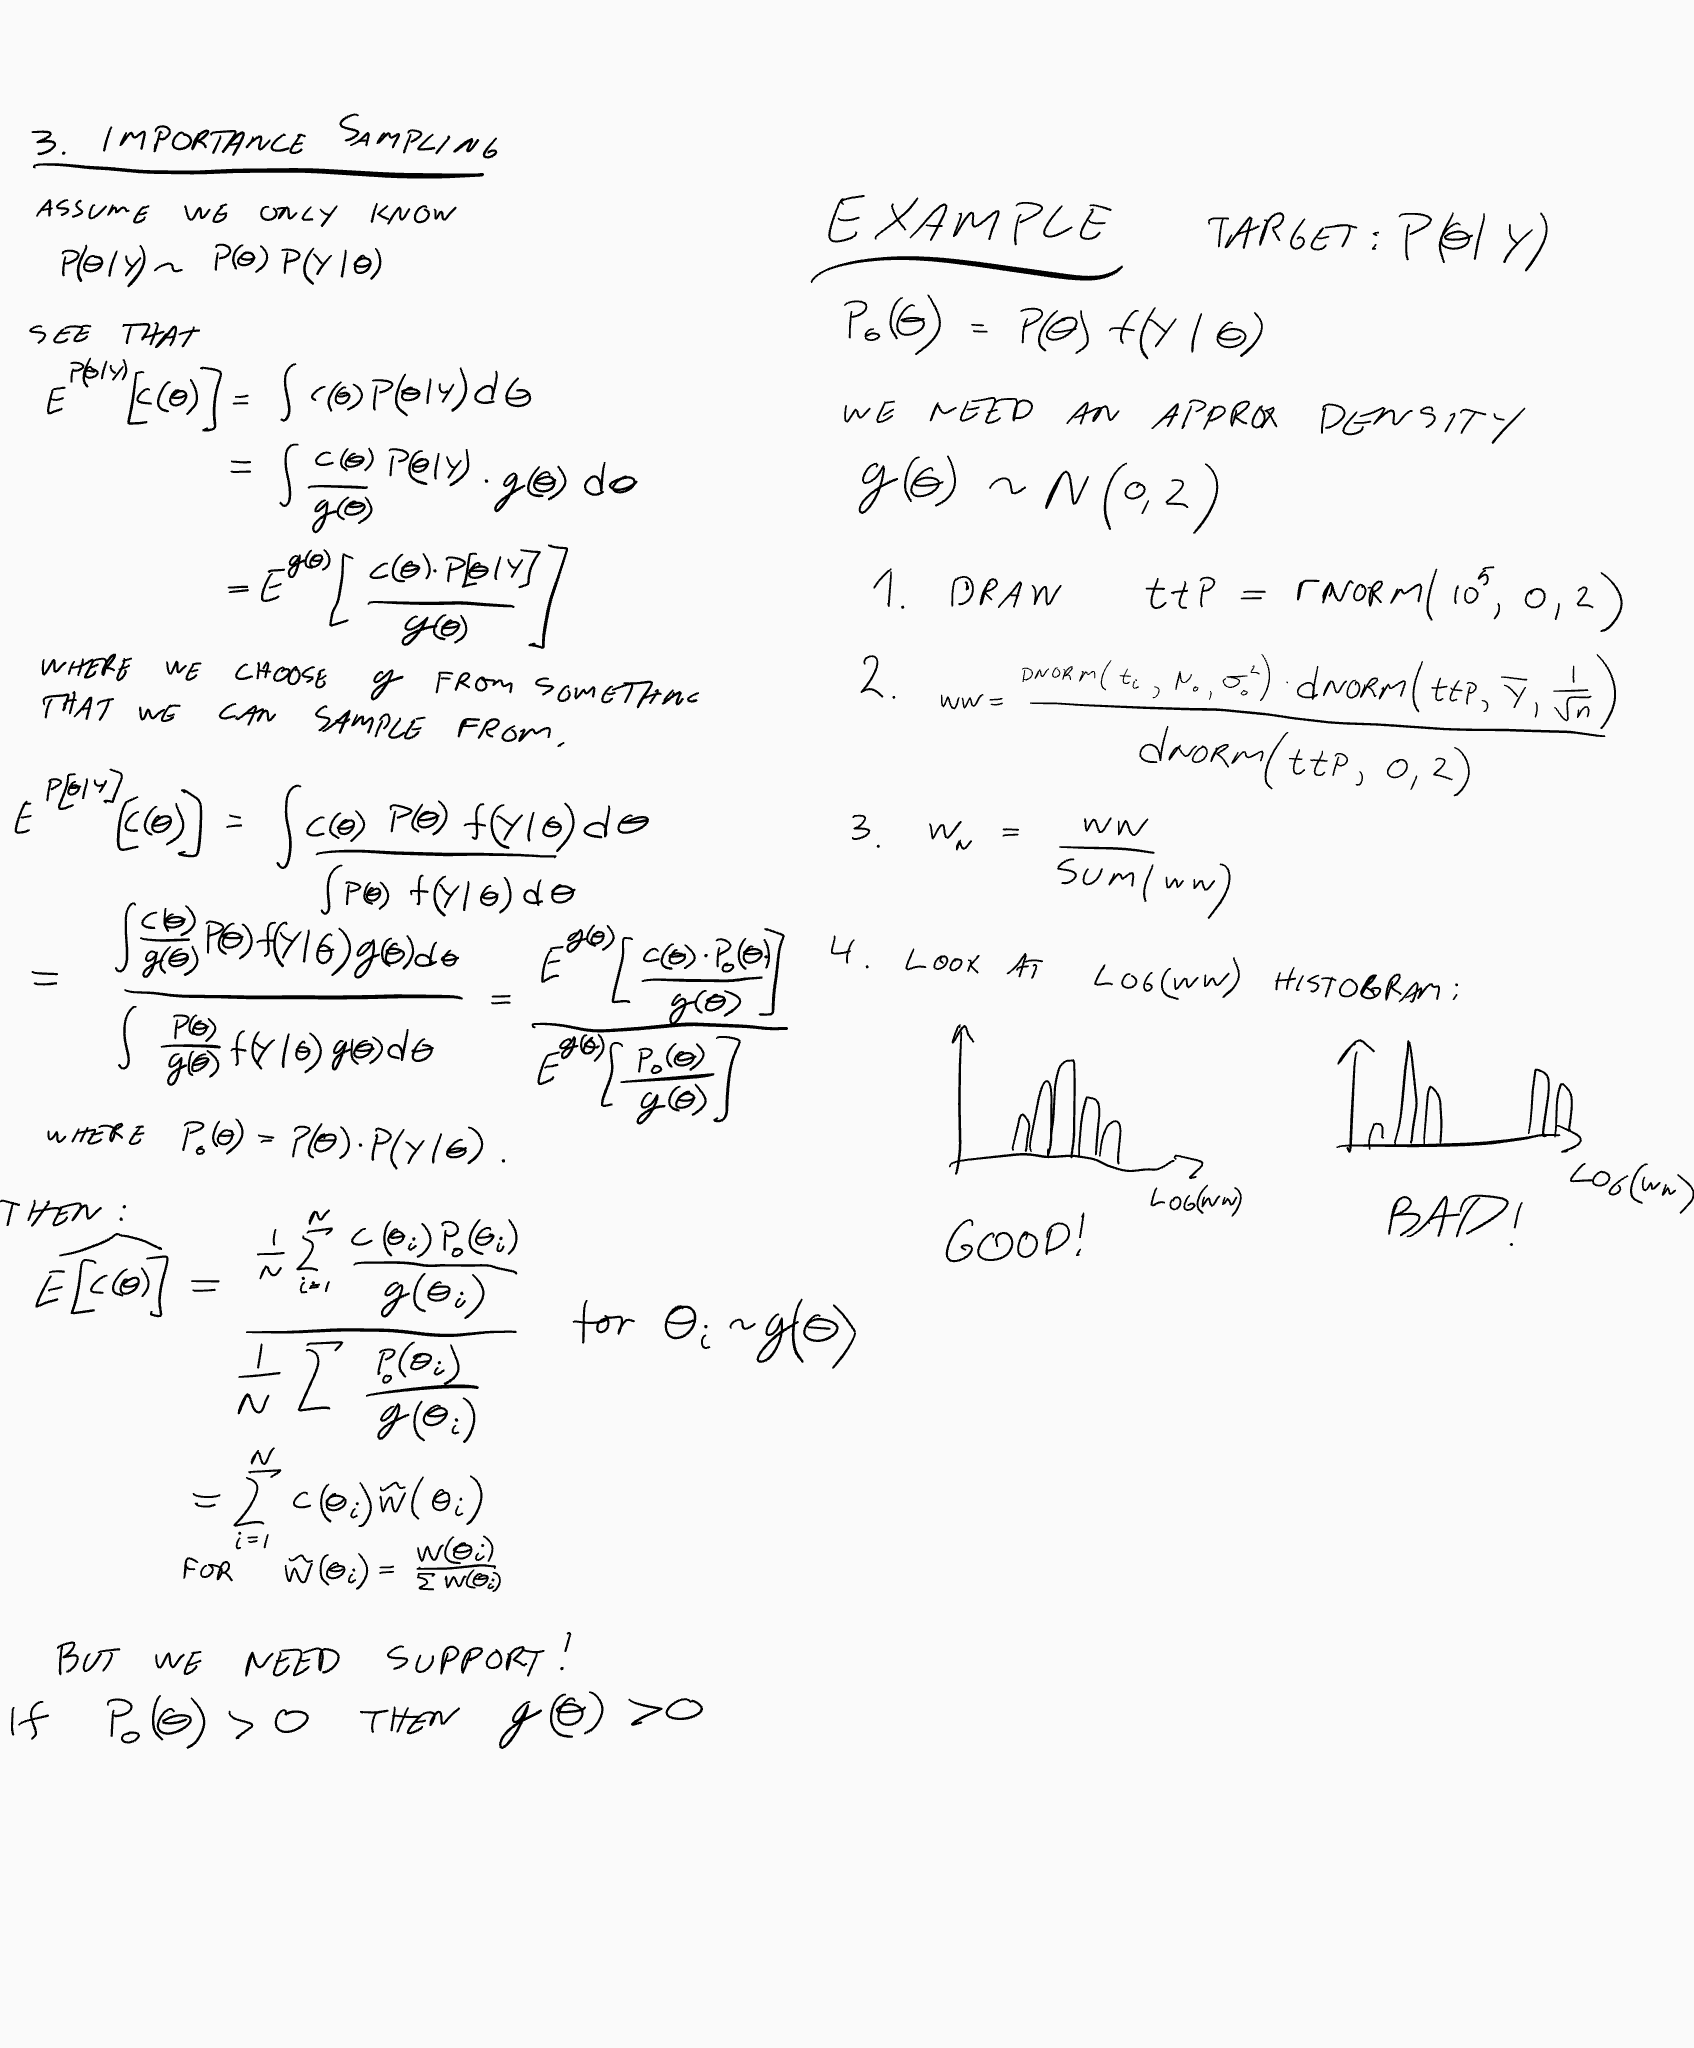 3. IMPORTANCE SAMPLING
ASSUME WE ONLY KNOW
P(θ|Y) ~ P(θ) P(Y|θ)
SEE THAT
E^{P(θ|Y)}[c(θ)] = ∫ c(θ) P(θ|Y) dθ
= ∫ c(θ)/g(θ) P(θ|Y) · g(θ) dθ
= E^{g(θ)} [ c(θ)·P[θ|Y] / g(θ) ]
WHERE WE CHOOSE g FROM SOMETHING
THAT WE CAN SAMPLE FROM.
E^{P[θ|Y]}[c(θ)] = ∫ c(θ) P(θ) f(Y|θ) dθ / ∫ P(θ) f(Y|θ) dθ
= ∫ c(θ)/g(θ) P(θ) f(Y|θ) g(θ) dθ / ∫ P(θ)/g(θ) f(Y|θ) g(θ) dθ = E^{g(θ)} [ c(θ)·P₀(θ) / g(θ) ] / E^{g(θ)} [ P₀(θ) / g(θ) ]
WHERE P₀(θ) = P(θ)·P(Y|θ).
THEN:
E[c(θ)] = 1/N Σ_{i=1}^{N} c(θᵢ) P₀(θᵢ) / g(θᵢ) / 1/N Σ P₀(θᵢ) / g(θᵢ) for θᵢ ~ g(θ)
= Σ_{i=1}^{N} c(θᵢ) w̃(θᵢ)
FOR w̃(θᵢ) = W(θᵢ) / Σ W(θᵢ)
BUT WE NEED SUPPORT!
If P₀(θ) > 0 THEN g(θ) > 0
EXAMPLE TARGET: P(θ|Y)
P₀(θ) = P(θ) f(Y|θ)
WE NEED AN APPROX DENSITY
g(θ) ~ N(0,2)
1. DRAW ttP = rNORM(10⁵, 0, 2)
2. WW = DNORM(tᵢ, μ₀, σ₀²) · dNORM(ttP, Ȳ, 1/√n) / dNORM(ttP, 0, 2)
3. W_N = WW / SUM(WW)
4. LOOK AT LOG(WW) HISTOGRAM:
LOG(WW)
GOOD!
LOG(WW)
BAD!